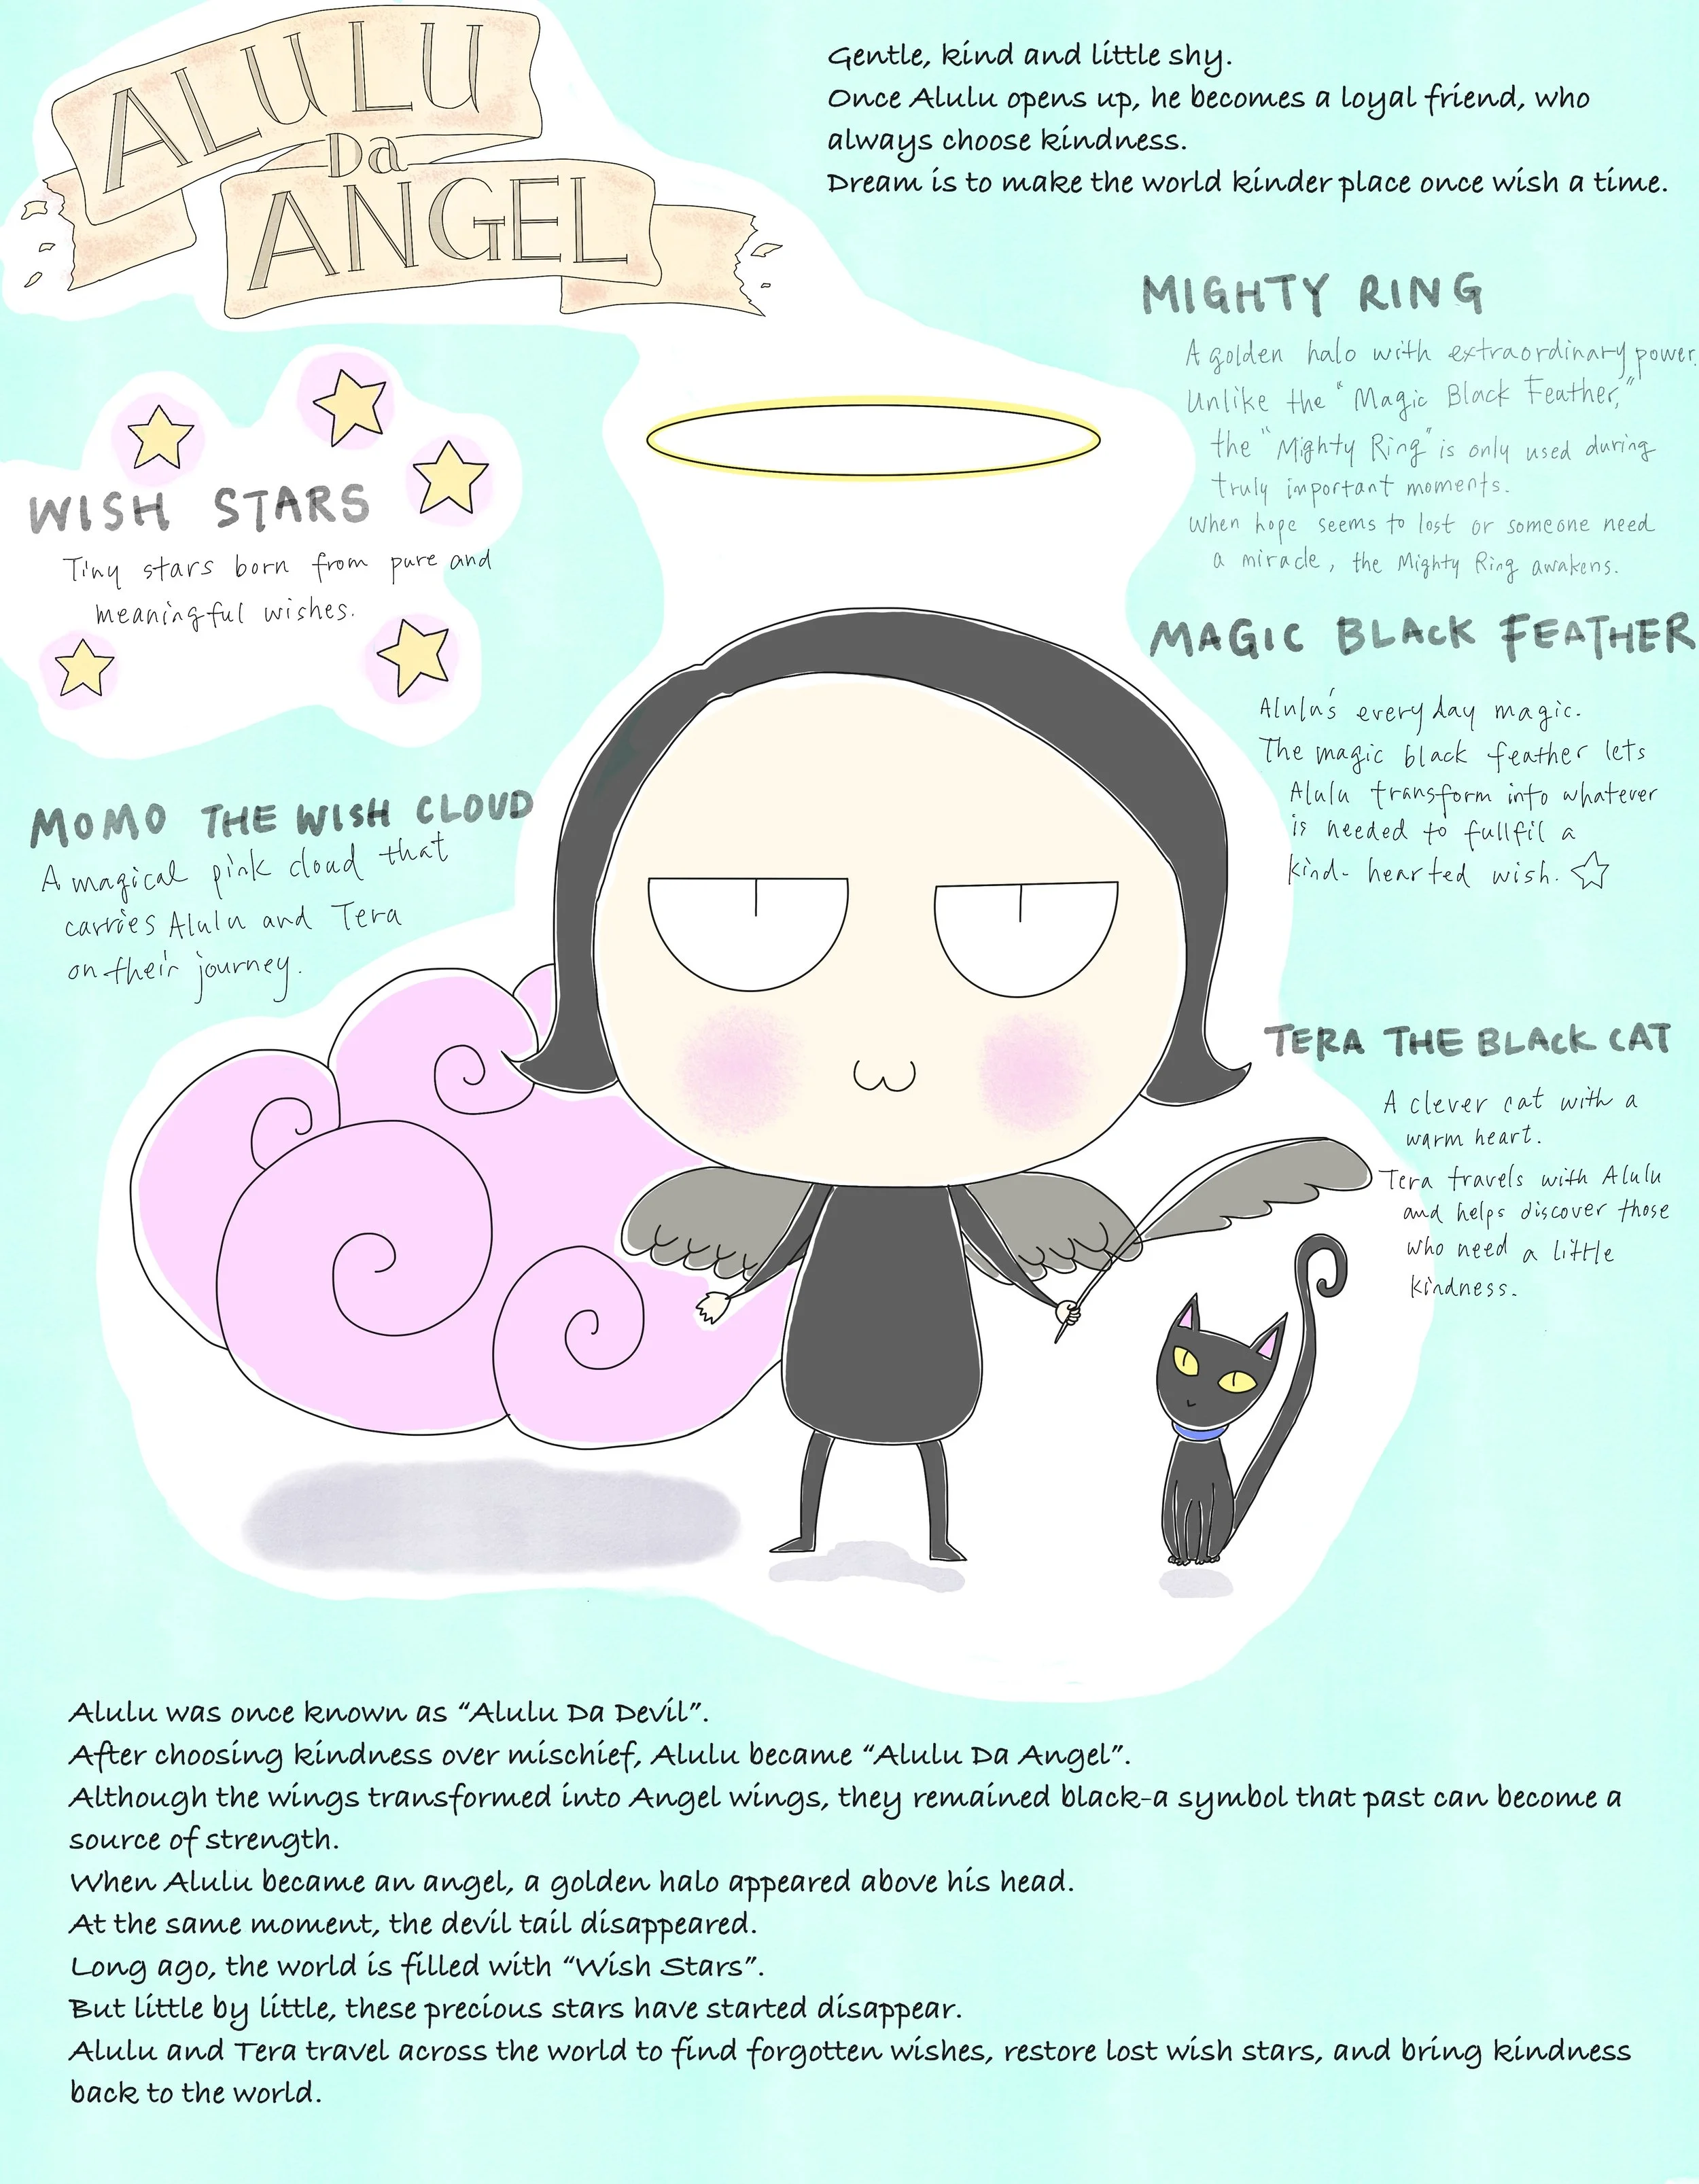 ALULU
Da
ANGEL
Gentle, kind and little shy.
Once Alulu opens up, he becomes a loyal friend, who
always choose kindness.
Dream is to make the world kinder place once wish a time.
MIGHTY RING
A golden halo with extraordinary power.
Unlike the "Magic Black Feather,"
the "Mighty Ring" is only used during
truly important moments.
When hope seems to lost or someone need
a miracle, the Mighty Ring awakens.
WISH STARS
Tiny stars born from pure and
meaningful wishes.
MAGIC BLACK FEATHER
Alulu's everyday magic.
The magic black feather lets
Alulu transform into whatever
is needed to fullfil a
kind-hearted wish. ☆
MOMO THE WISH CLOUD
A magical pink cloud that
carries Alulu and Tera
on their journey.
TERA THE BLACK CAT
A clever cat with a
warm heart.
Tera travels with Alulu
and helps discover those
who need a little
kindness.
Alulu was once known as “Alulu Da Devil”.
After choosing kindness over mischief, Alulu became “Alulu Da Angel”.
Although the wings transformed into Angel wings, they remained black-a symbol that past can become a
source of strength.
When Alulu became an angel, a golden halo appeared above his head.
At the same moment, the devil tail disappeared.
Long ago, the world is filled with “Wish Stars”.
But little by little, these precious stars have started disappear.
Alulu and Tera travel across the world to find forgotten wishes, restore lost wish stars, and bring kindness
back to the world.